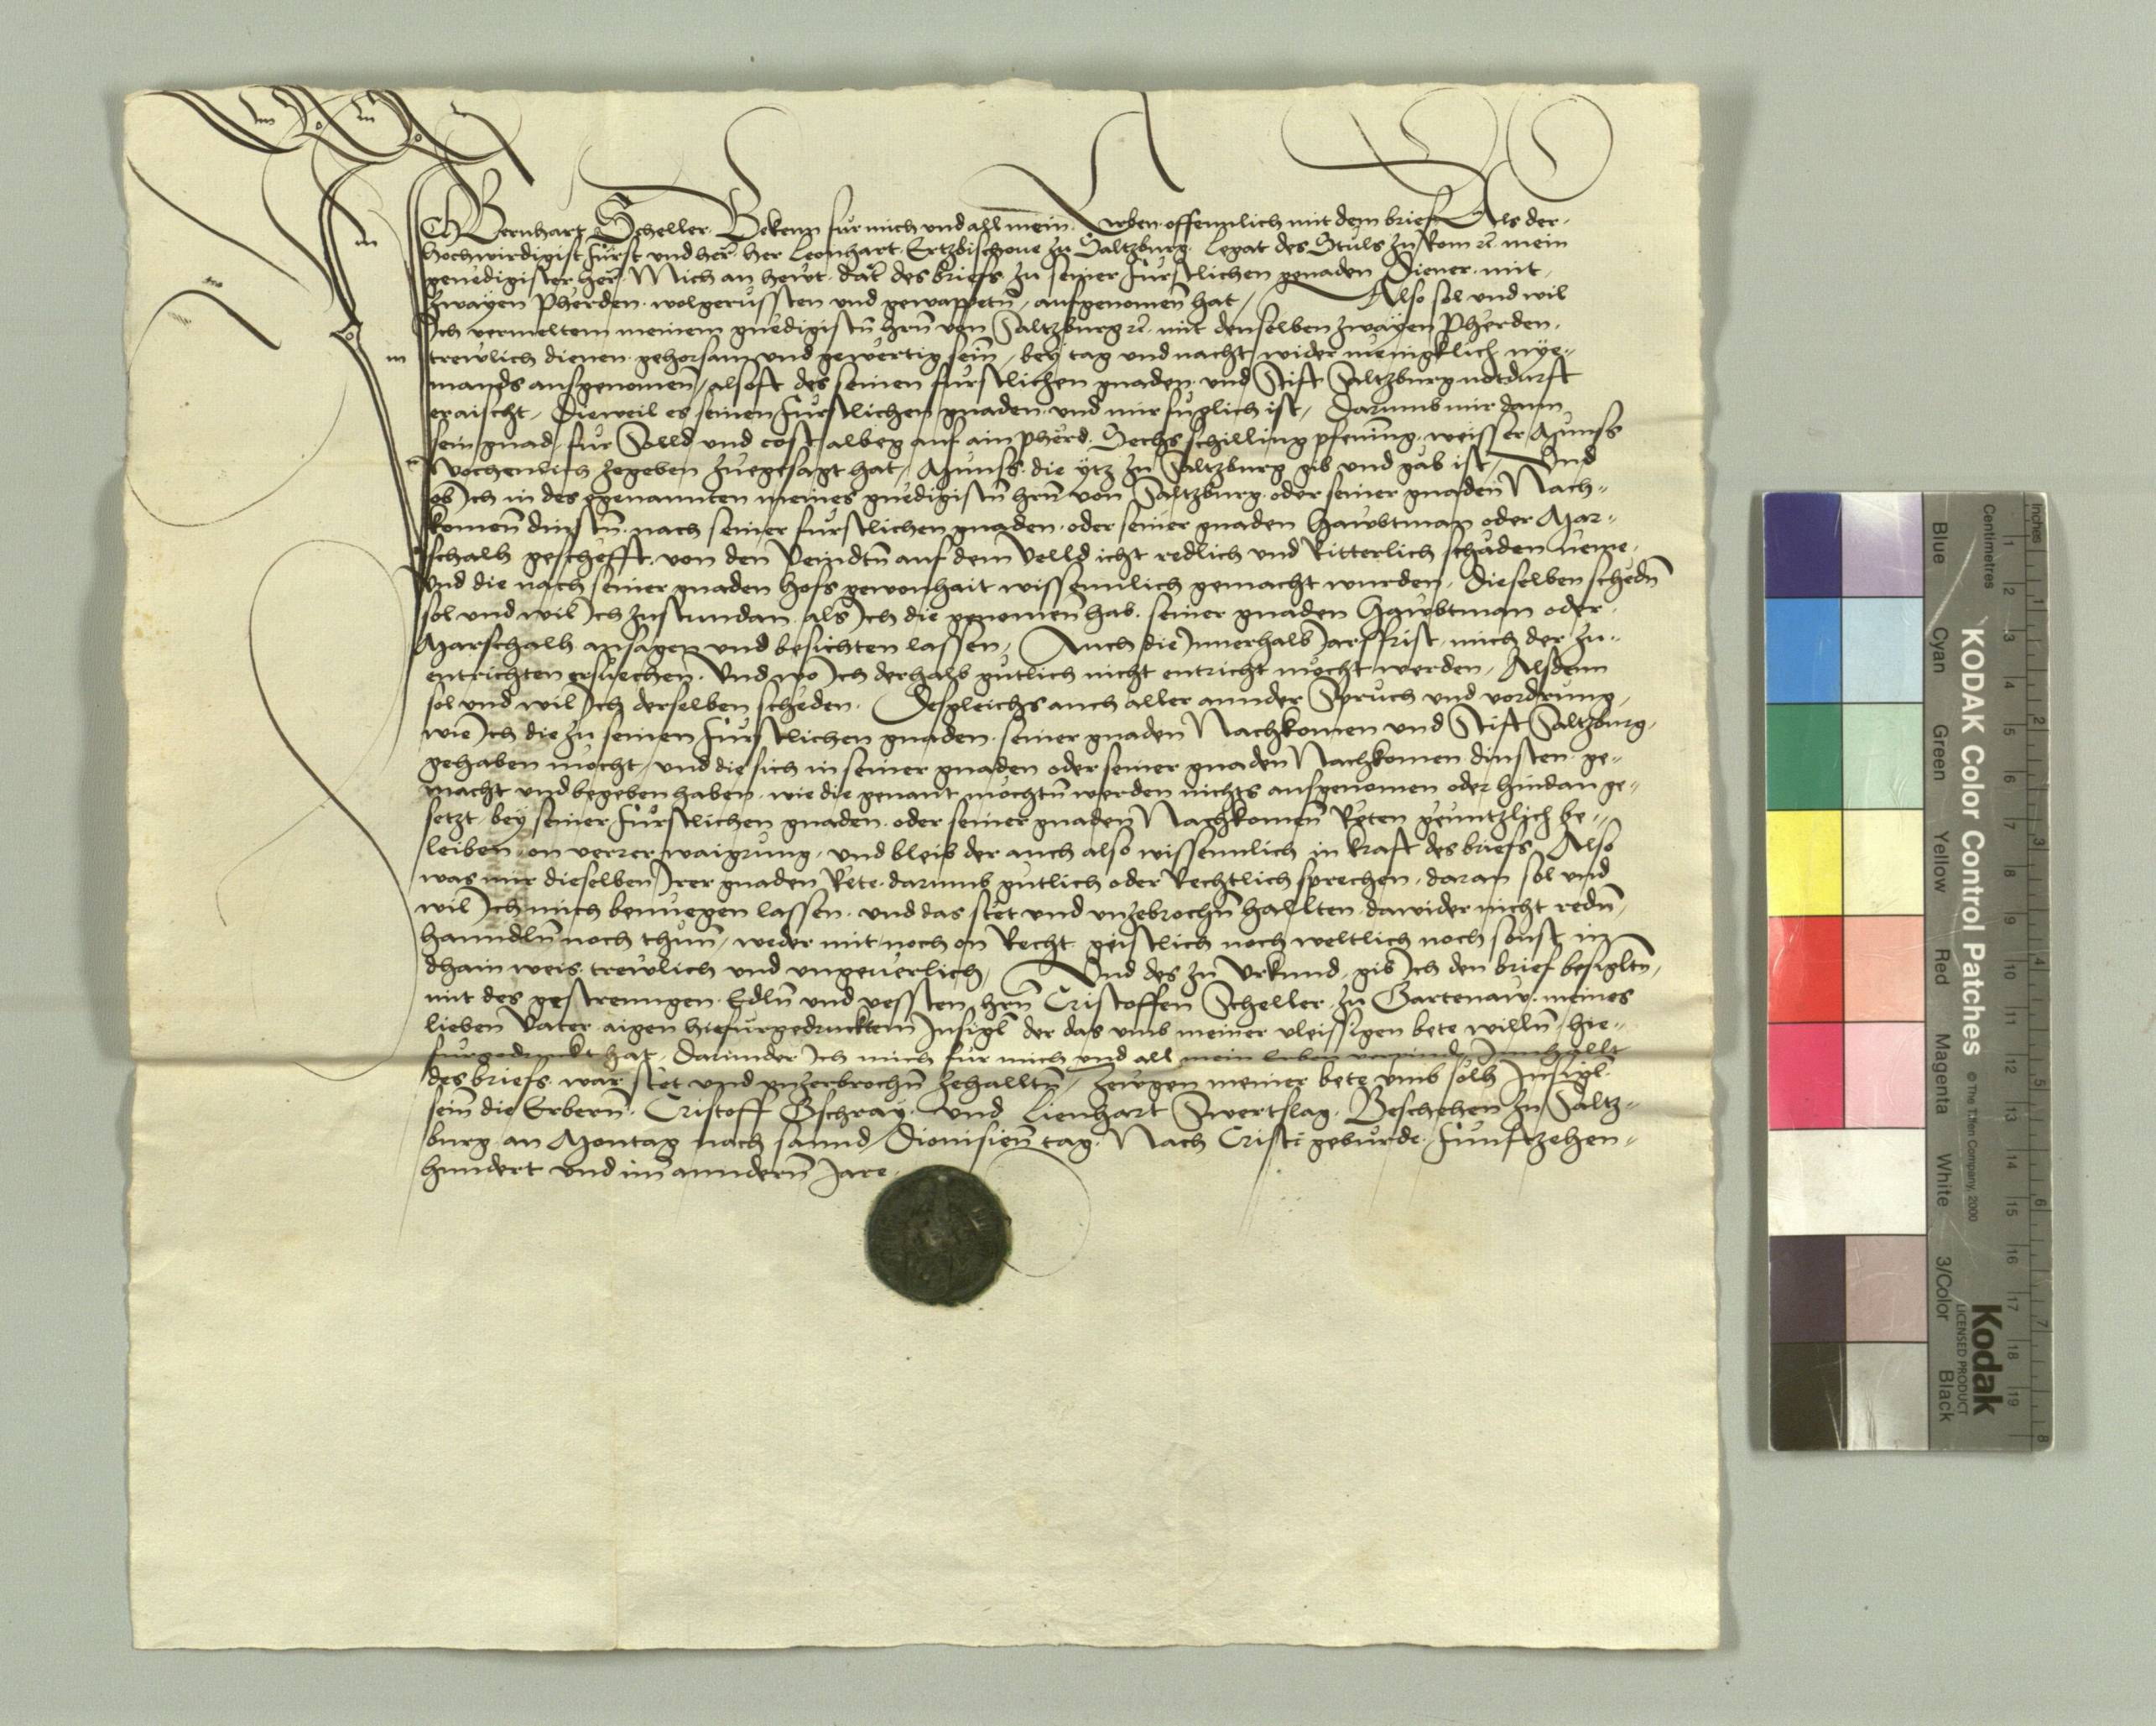 Ich Bernhart Scheller Bekenn fur mich und all mein Erben offennlich mit dem brief Als der
hochwirdigist fürst und her her Leonhart Ertzbischove zu Saltzburg Legat des Stuls zu Rom rc. mein
genedigister her Mich an hewt dat des briefs zu seiner fürstlichen genaden Diener mit
zwayen Pherden wolgerussten und gewappetn aufgenomen hat / Also sol und wil
Ich vermeltem meinem gnedigistn hrn von Saltzburg rc. mit denselben zwayen Pherden
trewlich dienen gehorsam und gewertig sein / bey tag und nacht wider menigklich nye-
mands ausgenomen / alsofft des seinen fürstlichen gnaden und Stift Saltzburg notdurft
eraischt / Dieweil es seinen fürstlichen gnaden und mir fuglich ist / Darumb mir dann
sein gnad für Solld und cost albeg auf ain pherd Sechs schilling pfening weisser Munss
Wochenlich zegeben zuegesagt hat / Munss die ytz zu Saltzburg gib und gab ist / Und
ob Ich in des egenannten meines gnedigistn hrn von Saltzburg oder seiner gnaden Nach-
komen dinstn nach seiner fürstlichen gnaden oder seiner gnaden Hawbtman oder Mar-
schalh geschefft von den Veindtn auf dem Velld icht redlich und Ritterlich schaden neme
Und die nach seiner gnaden hofs gewonhait wissennlich gemacht wurden / Dieselben schedn
sol und wil Ich zustundan als Ich die genomen hab seiner gnaden Hawbtman oder
Marschalh ansagen und besichten lassen / Auch die Innerhalb Jarsfrist mich der zu
entrichten ersuechen Und wo Ich derhalb gutlich nicht entricht mocht werden / Alsdenn
sol und wil Ich derselben scheden Desgleichs auch aller annder Spruch und vordrung
wie Ich die zu seinen fürstlichen gnaden seiner gnaden Nachkomen und Stift Saltzburg
gehaben mocht / und die sich in seiner gnaden oder seiner gnaden Nachkomen dinsten ge-
macht und begeben haben wie die genant mochtn werden nichts ausgenomen oder hindan ge-
setzt bey seiner fürstlichen gnaden oder seiner gnaden Nachkomen Reten genntzlich be-
leiben on verrer waigrung und bleib der auch also wissennlich in kraft des briefs Also
was mir dieselben Irer gnaden Rete darumb gutlich oder Rechtlich sprechen daran sol und
wil Ich mich benuegen lassen und das stet und unzebrochn hallten dawider nicht redn
hanndln noch thun / weder mit noch on Recht geistlich noch weltlich noch sonst in
dhain weis trewlich und ungeverlich / Und des zu Urkund gib Ich den brief besigltn
mit des gestrenngen Edln und vessten hrn Cristoffen Scheller zu Gartenaw meines
lieben Vater aigen hiefurgedrucktem Insigl der das umb meiner vleissigen bete willn hie-
furgedruckt hat / Darunder Ich mich für mich und all mein Erben verpind Innhallt
des briefs war stet und unzerbrochn zehalltn / Zewgen meiner bete umb solh Insigl
sein die Erbern Cristoff Gschray und Lienhart Swertslag Beschehen zu Saltz-
burg an Montag nach sannd Dionisien tag Nach Cristi geburde funftzehen-
hundert und im anndern Jare
KODAK Color Control Patches
© The Tiffen Company, 2000
Kodak
LICENSED PRODUCT
Blue Cyan Green Yellow Red Magenta White 3/Color Black
Inches 1 2 3 4 5 6 7 8
Centimetres 1 2 3 4 5 6 7 8 9 10 11 12 13 14 15 16 17 18 19